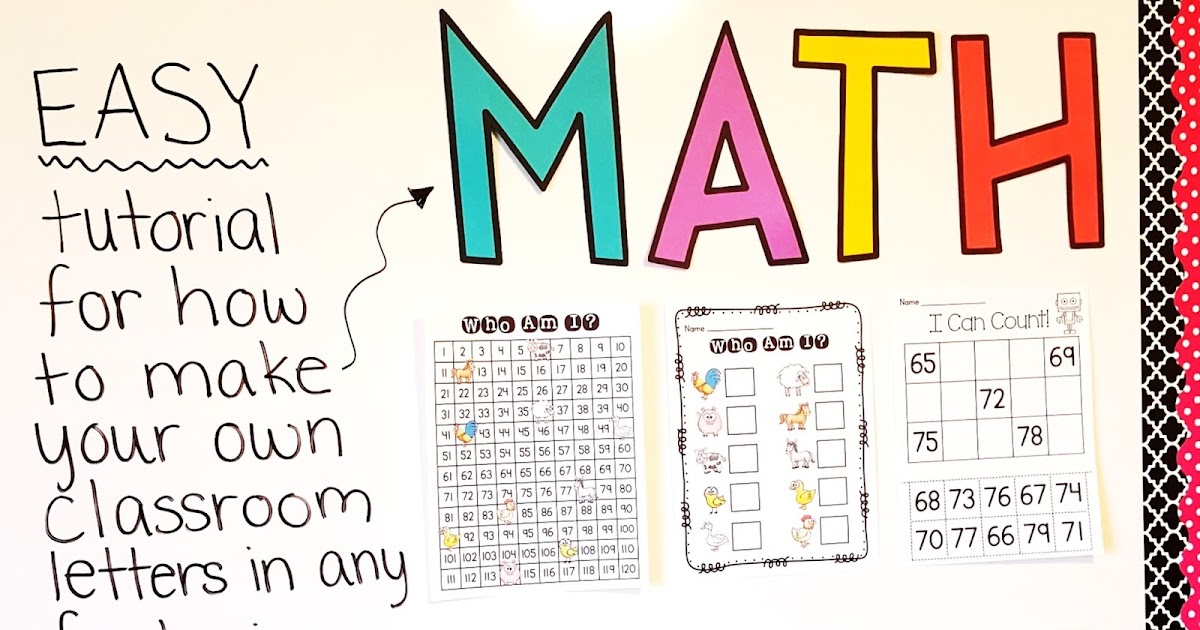 EASY
tutorial
for how
to make
your own
classroom
letters in any
MATH
Who Am I?
1 2 3 4 5 7 8 9 10
11 13 14 15 16 17 18 19 20
21 22 23 24 25 26 27 28 29 30
31 32 33 34 35 37 38 39 40
41 43 44 45 46 47 48 49
51 52 53 54 55 56 57 58 59 60
61 62 63 64 65 66 67 68 69 70
71 72 73 74 75 76 77 79 80
81 82 83 85 86 87 88 89 90
92 93 94 95 96 97 98 99 100
101 102 103 104 105 106 108 109 110
111 112 113 115 116 117 118 119 120
Name
Who Am I?
Name
I Can Count!
65 69
72
75 78
68 73 76 67 74
70 77 66 79 71